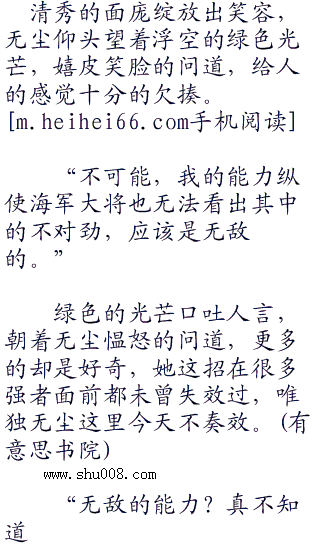 清秀的面庞绽放出笑容，
无尘仰头望着浮空的绿色光
芒，嬉皮笑脸的问道，给人
的感觉十分的欠揍。
[m.heihei66.com手机阅读]
“不可能，我的能力纵
使海军大将也无法看出其中
的不对劲，应该是无敌
的。”
绿色的光芒口吐人言，
朝着无尘愠怒的问道，更多
的却是好奇，她这招在很多
强者面前都未曾失效过，唯
独无尘这里今天不奏效。(有
意思书院)
www.shu008.com
“无敌的能力？真不知
道